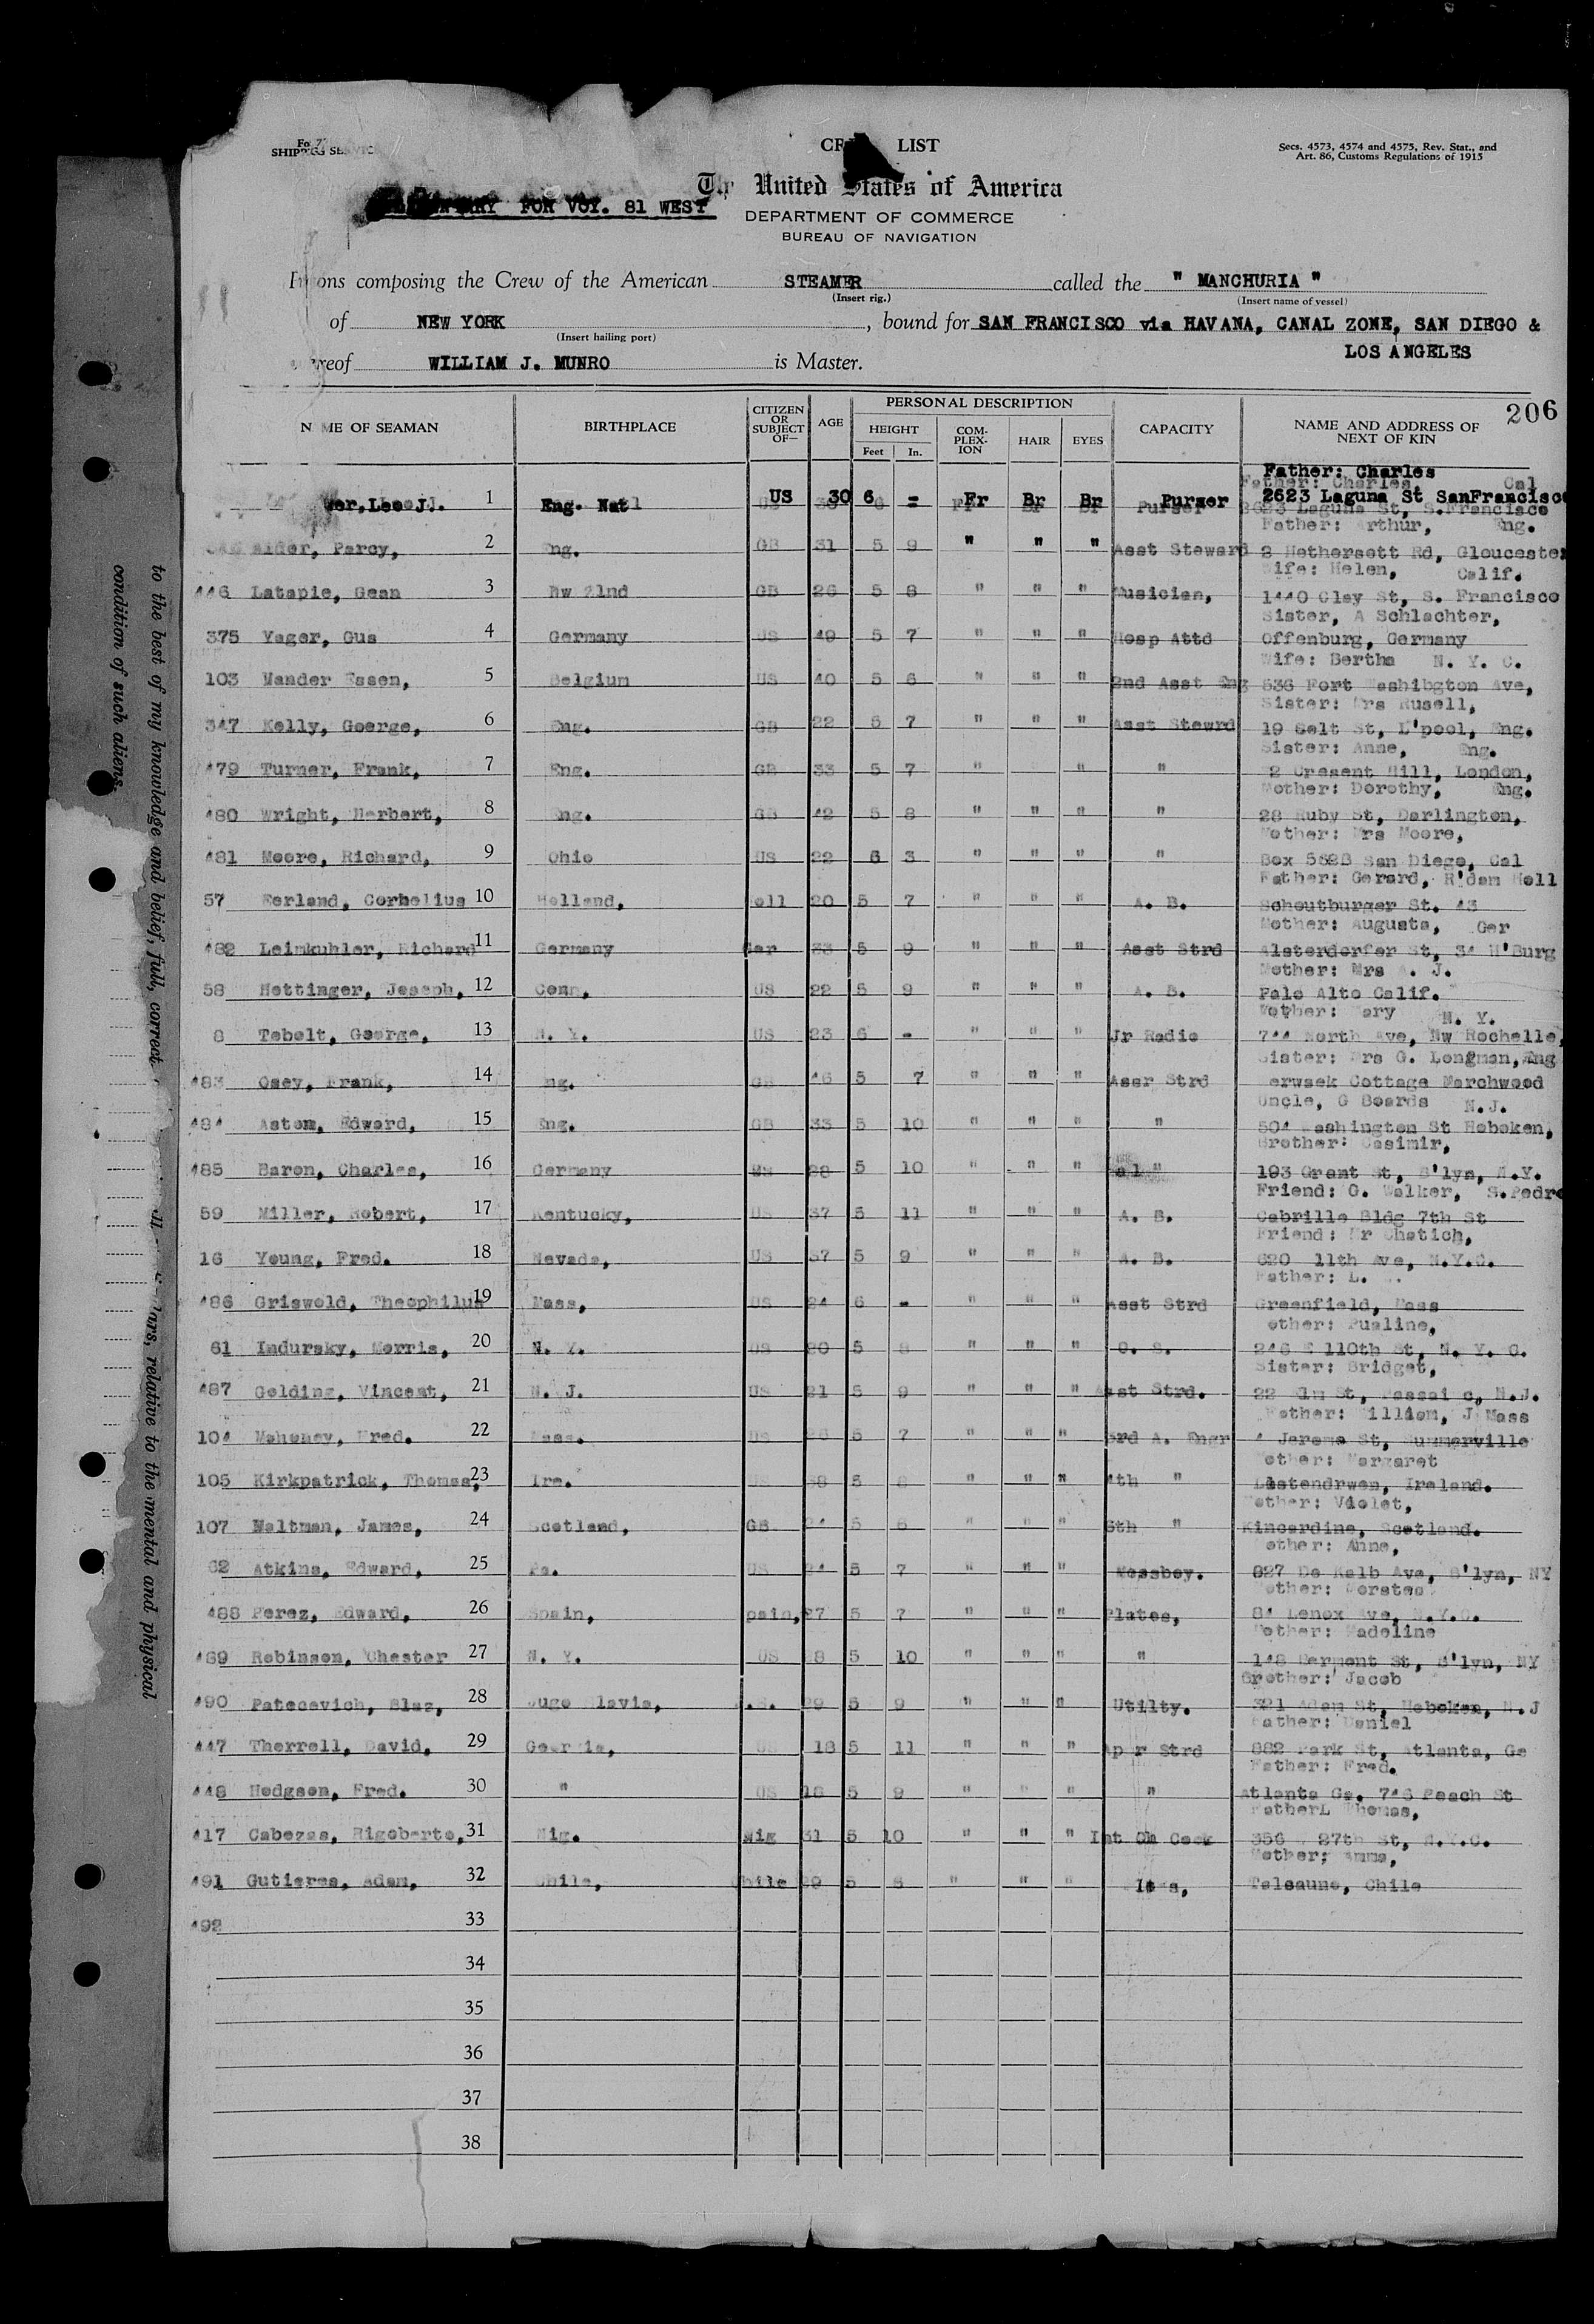 SHIP
CR LIST
Secs. 4573, 4574 and 4575, Rev. Stat., and
Art. 86, Customs Regulations of 1915
United States of America
FOR VOY. 81 WEST
DEPARTMENT OF COMMERCE
BUREAU OF NAVIGATION
ons composing the Crew of the American STEAMER called the " MANCHURIA "
(Insert rig.) (Insert name of vessel)
of NEW YORK, bound for SAN FRANCISCO via HAVANA, CANAL ZONE, SAN DIEGO &
(Insert hailing port)
LOS ANGELES
reof WILLIAM J. MUNRO is Master.
206
NAME OF SEAMAN BIRTHPLACE CITIZEN OR SUBJECT OF— AGE PERSONAL DESCRIPTION HEIGHT Feet In. COM-PLEX-ION HAIR EYES CAPACITY NAME AND ADDRESS OF NEXT OF KIN
Father: Charles Cal
1 Eng. Natl US 30 6 - Fr Br Br Purser 2623 Laguna St SanFrancisco
Father: Arthur, Eng.
Percy, 2 Eng. GB 31 5 9 " " " Asst Steward 2 Hethersett Rd, Gloucester
Wife: Helen, Calif.
446 Latapie, Gean 3 Nw Zlnd GB 26 5 8 " " " Musician, 1440 Clay St, S. Francisco
Sister, A Schlachter,
375 Yager, Gus 4 Germany US 49 5 7 " " " Hosp Attd Offenburg, Germany
Wife: Bertha N. Y. C.
103 Mander Essen, 5 Belgium US 40 5 6 " " " 2nd Asst Eng 636 Fort Washibgton Ave,
Sister: Mrs Rusell,
347 Kelly, Goerge, 6 Eng. GB 22 5 7 " " " Asst Stewrd 19 Salt St, L'pool, Eng.
Sister: Anne, Eng.
479 Turner, Frank, 7 Eng. GB 33 5 7 " " " 2 Cresent Hill, London,
Mother: Dorothy, Eng.
480 Wright, Herbert, 8 Eng. GB 42 5 8 " " " " 28 Ruby St, Darlington,
Mother: Mrs Moore,
481 Moore, Richard, 9 Ohio US 22 6 3 " " " " Box San Diego, Cal
Father: Gerard, R'dam Holl
57 Corbelius 10 Holland, Holl 20 5 7 " " " A. B. Schoutburger St. 43
Mother: Augusta, Ger
482 Leimkuhler, Richard 11 Germany Ger 33 5 9 " " " Asst Strd Alsterdorfer St, 34 H'Burg
Mother: Mrs A. J.
58 Hettinger, Joseph, 12 Conn, US 22 5 9 " " " A. B. Palo Alto Calif.
Mother: Mary N. Y.
8 Tebelt, George, 13 N. Y. US 23 6 - " " " Jr Radio 744 North Ave, Nw Rochelle,
Sister: Mrs G. Longman, Eng
483 Osey, Frank, 14 Eng. GB 46 5 7 " " " Assr Strd Cottage Marchwood
Uncle, G Boards N.J.
484 Aston, Edward, 15 Eng. GB 33 5 10 " " " " 504 Washington St Hoboken,
Brother: Casimir,
485 Baron, Charles, 16 Germany 28 5 10 " " " " 193 Grant St, B'lyn, N.Y.
Friend: G. Walker, S.Pedro
59 Miller, Robert, 17 Kentucky, US 37 5 11 " " " A. B. Cabrillo Bldg 7th St
Friend: Mr Chatich,
16 Young, Fred. 18 Nevada, US 37 5 9 " " " A. B. 620 11th Ave, N.Y.C.
Father: L.
486 Griswold, Theophilus 19 Mass, US 24 6 - " " " Asst Strd Greenfield, Mass
Mother: Pualine,
61 Indursky, Morris, 20 N. Y. US 20 5 8 " " " O. S. 246 E 110th St, N. Y. C.
Sister: Bridget,
487 Golding, Vincent, 21 N. J. US 21 5 9 " " " Asst Strd. 22 Elm St, Passai c, N.J.
Father: William, J Mass
104 Mahoney, Fred. 22 Mass. US 5 7 " " " 3rd A. Engr 4 Jerome St, Summerville
Mother: Margaret
105 Kirkpatrick, Thomas, 23 Ire. US 38 5 8 " " " 4th " Ireland.
Mother: Violet,
107 Maltman, James, 24 Scotland, GB 24 5 6 " " " 5th " Kincardine, Scotland.
Mother: Anne,
62 Atkins, Edward, 25 Pa. US 24 5 7 " " " Messboy. 827 De Kalb Ave, B'lyn, NY
488 Perez, Edward, 26 Spain, pain, 27 5 7 " " " Plates, 84 Lenox Ave, N.Y.C.
Mother: Madeline
489 Robinson, Chester 27 N. Y. US 5 10 " " " " 148 St, B'lyn, NY
Brother: Jacob
490 Patecevich, Blaz, 28 Jugo Slavia, 29 5 9 " " " Utilty. 321 Adam St, Hoboken, N.J
Father: Daniel
447 Therrell, David, 29 Georgia, US 18 5 11 " " " Ap r Strd 882 Park St, Atlanta, Ga
Father: Fred.
448 Hodgson, Fred. 30 " US 18 5 9 " " " " Atlanta Ga. 746 Peach St
FatherL Thomas,
417 Cabezas, Rigoberto, 31 Nig. Nig 31 5 10 " " " Int Ch Cook 356 W 27th St, N.Y.C.
Mother; Amma,
491 Gutieres, Adam, 32 Chile, Chile 29 5 8 " " " Talcauno, Chile
492 33
34
35
36
37
38
to the best of my knowledge and belief, full, correct
relative to the mental and physical
condition of such aliens.